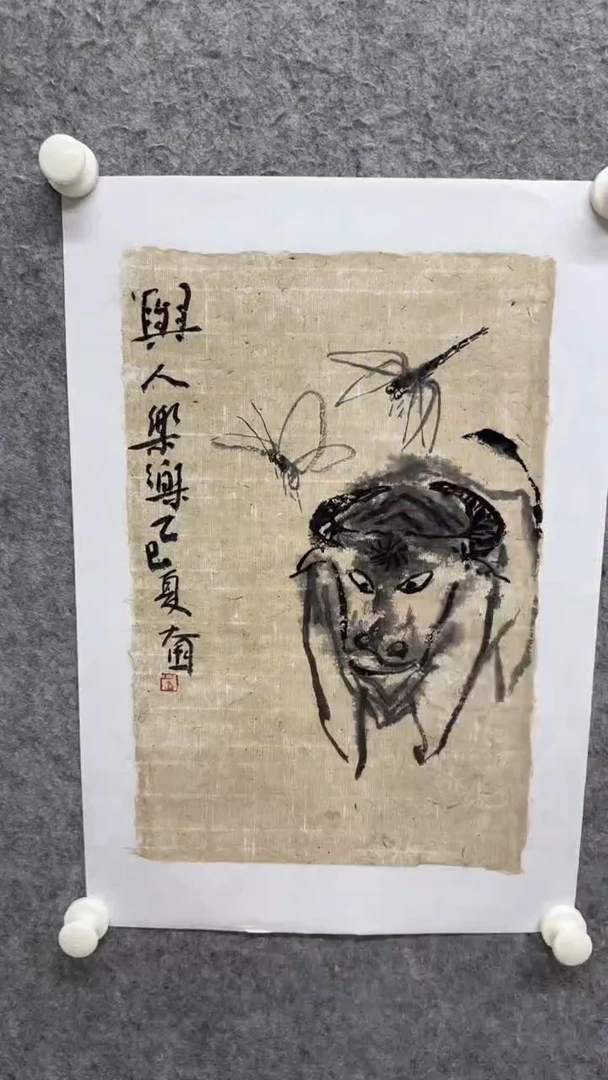 與人樂樂乙巳夏